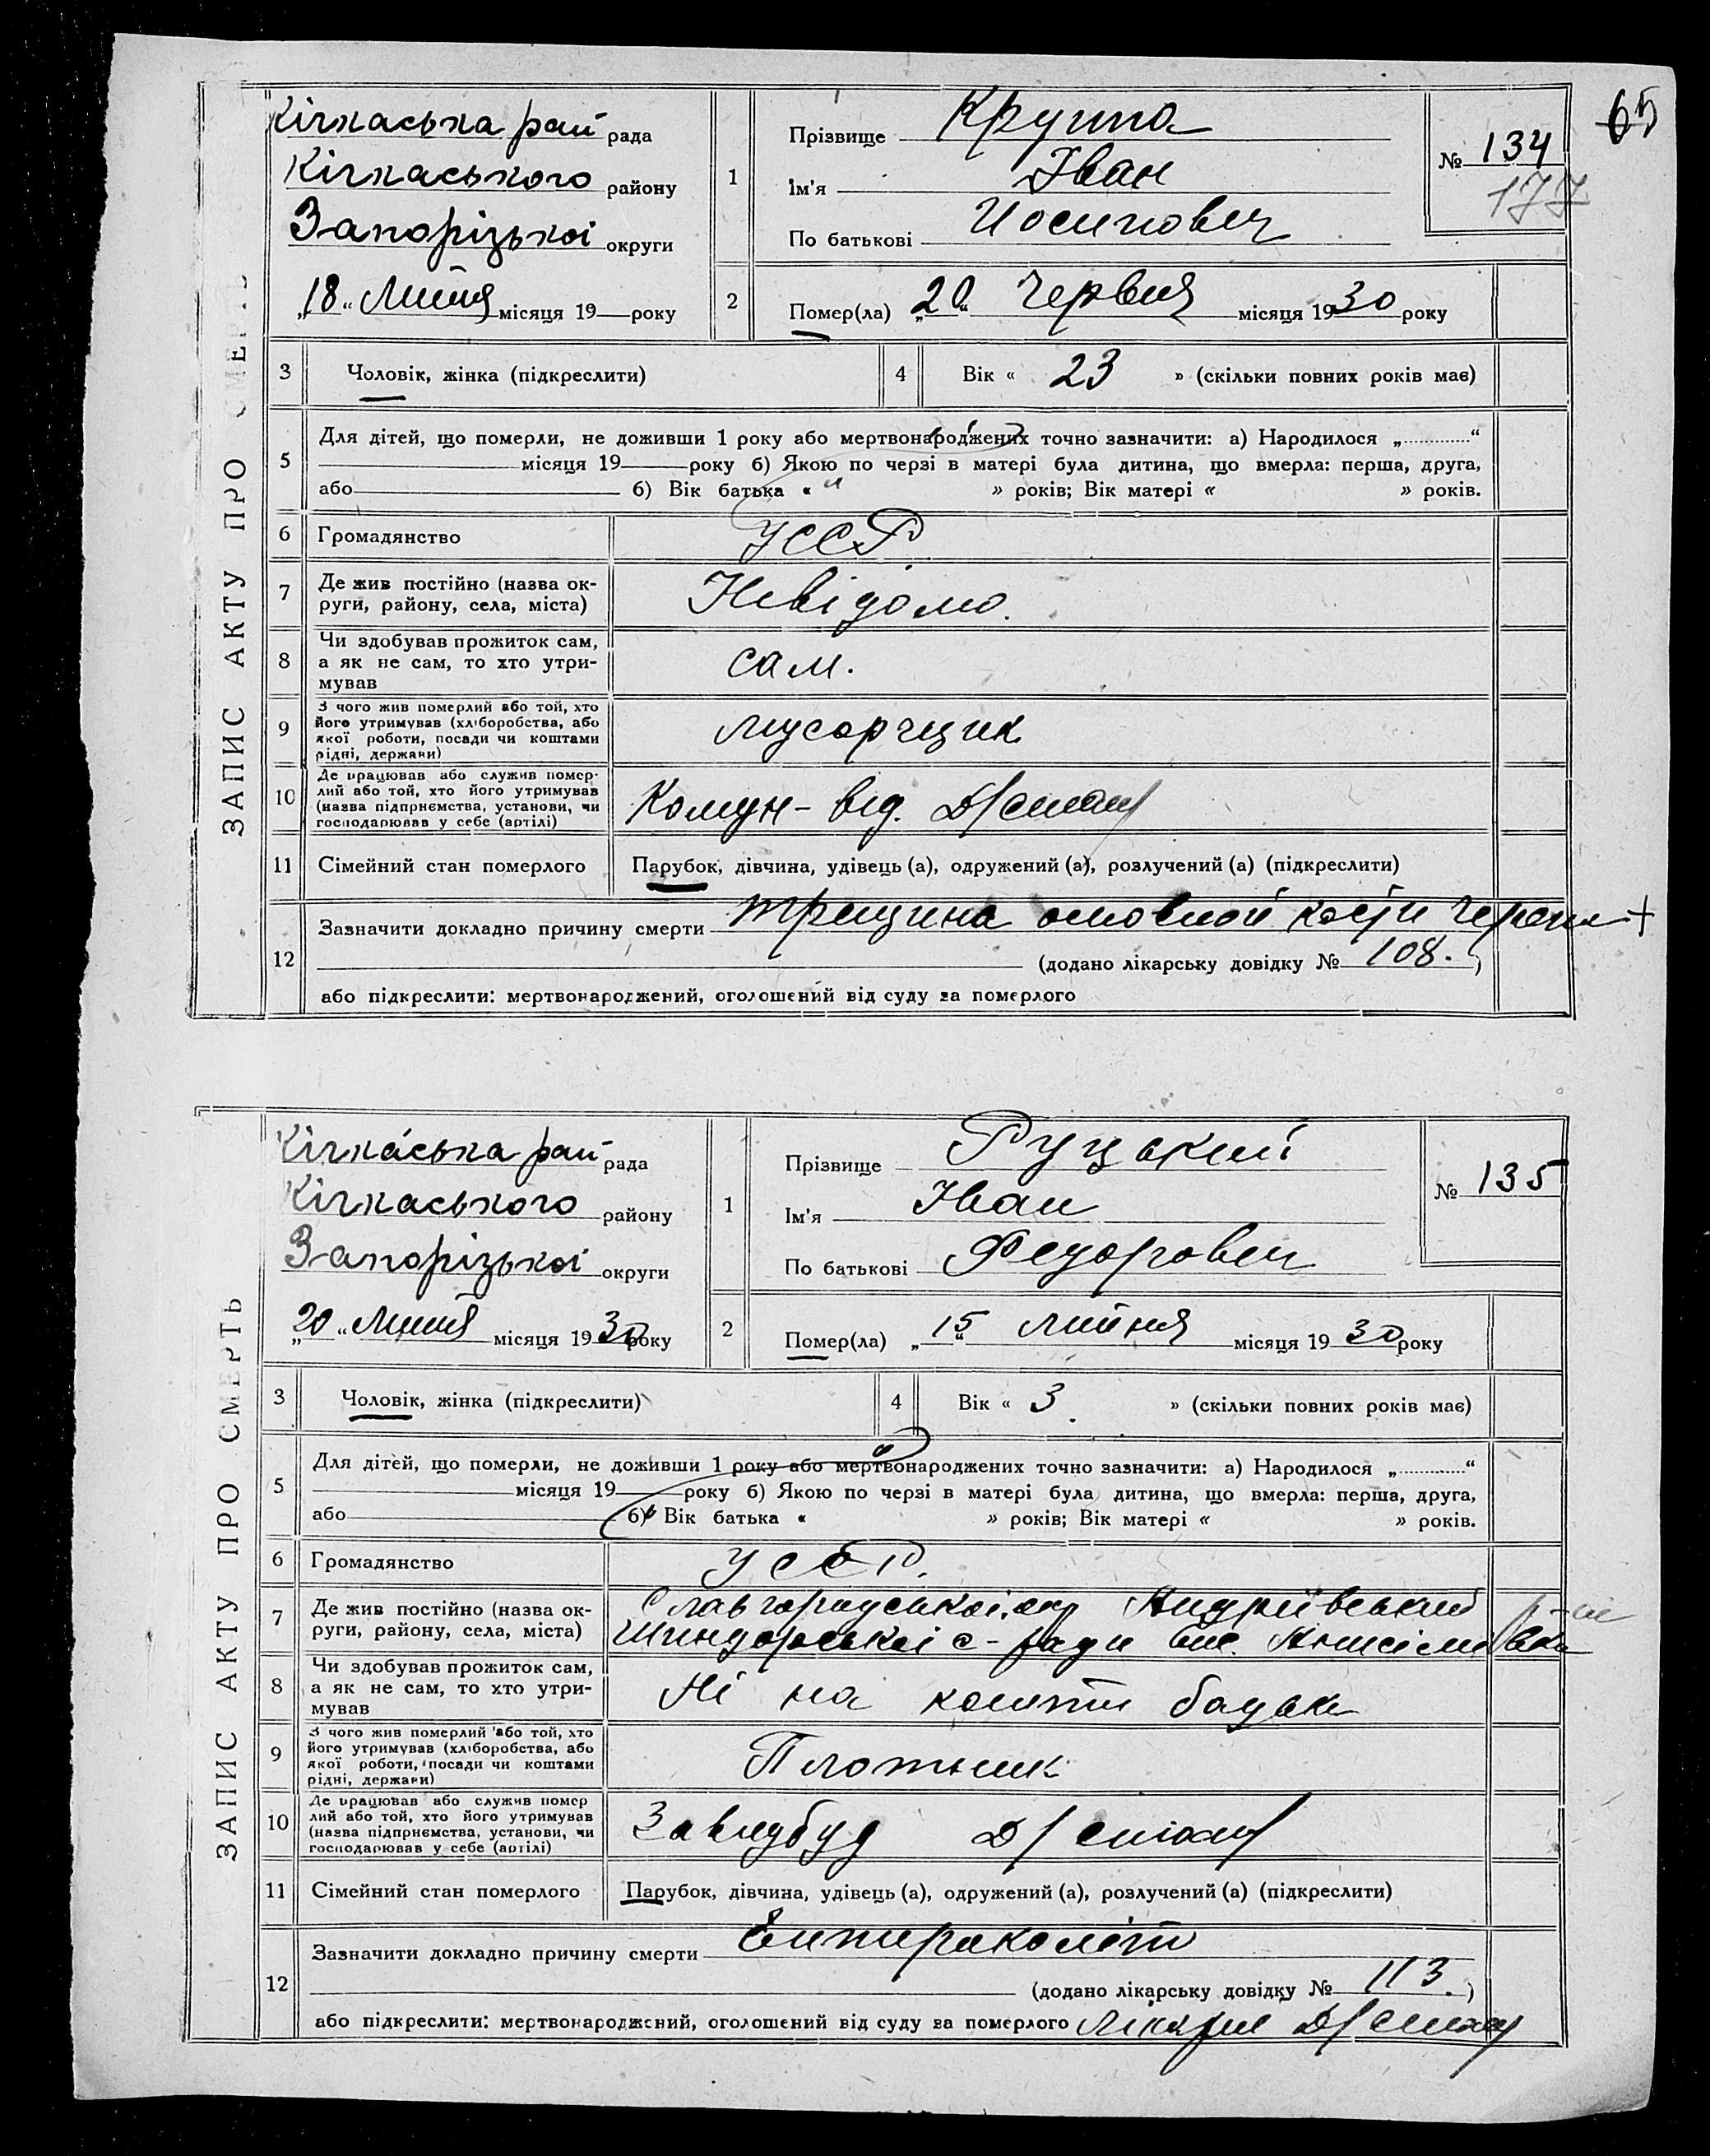 65
ЗАПИС АКТУ ПРО СМЕРТЬ
Кічкаська рай рада
Кічкаського району
Запорізької округи
„18“ Липня місяця 19 року
1
Прізвище Круппа
Ім'я Іван
По батькові Иосипович
№ 134
177
2
Помер(ла) „20“ Червня місяця 1930 року
3 Чоловік, жінка (підкреслити)
4 Вік « 23 » (скільки повних років має)
5 Для дітей, що померли, не доживши 1 року або мертвонароджених точно зазначити: а) Народилося „ “
місяця 19 року б) Якою по черзі в матері була дитина, що вмерла: перша, друга,
або б) Вік батька « » років; Вік матері « » років.
6 Громадянство УССР
7 Де жив постійно (назва округи, району, села, міста) Невідомо.
8 Чи здобував прожиток сам, а як не сам, то хто утримував сам.
9 З чого жив померлий або той, хто його утримував (хліборобства, або якої роботи, посади чи коштами рідні, держави) мусорщик
10 Де працював або служив померлий або той, хто його утримував (назва підприємства, установи, чи господарював у себе (артілі) Комун-від. Д/
11 Сімейний стан померлого Парубок, дівчина, удівець (а), одружений (а), розлучений (а) (підкреслити)
12 Зазначити докладно причину смерти трещина основной кости черепа +
(додано лікарську довідку № 108.)
або підкреслити: мертвонароджений, оголошений від суду за померлого
ЗАПИС АКТУ ПРО СМЕРТЬ
Кічкаська рай рада
Кічкаського району
Запорізької округи
„20“ Липня місяця 1930 року
1
Прізвище Руцький
Ім'я Іван
По батькові Федорович
№ 135
2
Помер(ла) „15“ липня місяця 1930 року
3 Чоловік, жінка (підкреслити)
4 Вік « 3 » (скільки повних років має)
5 Для дітей, що померли, не доживши 1 року або мертвонароджених точно зазначити: а) Народилося „ “
місяця 19 року б) Якою по черзі в матері була дитина, що вмерла: перша, друга,
або б) Вік батька « » років; Вік матері « » років.
6 Громадянство УССР.
7 Де жив постійно (назва округи, району, села, міста) Славгородської, окр Андріївський
с-ради
8 Чи здобував прожиток сам, а як не сам, то хто утримував Ні на кошти батьки
9 З чого жив померлий або той, хто його утримував (хліборобства, або якої роботи, посади чи коштами рідні, держави) Плотник
10 Де працював або служив померлий або той, хто його утримував (назва підприємства, установи, чи господарював у себе (артілі) Д/
11 Сімейний стан померлого Парубок, дівчина, удівець (а), одружений (а), розлучений (а) (підкреслити)
12 Зазначити докладно причину смерти Ентероколіт
(додано лікарську довідку № 113.)
або підкреслити: мертвонароджений, оголошений від суду за померлого